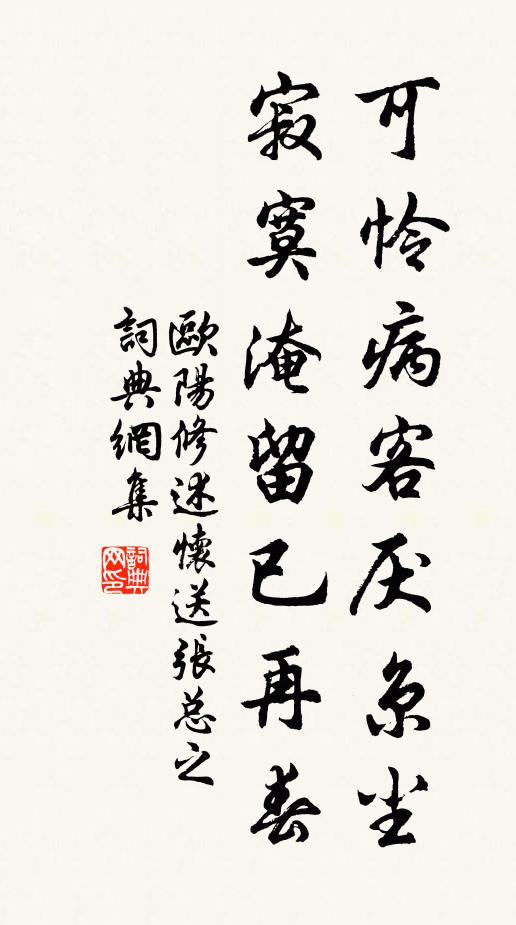 可怜病客厌京尘
寂寞淹留已再春
歐陽修述懷送張总之
詞典網集
詞典网印